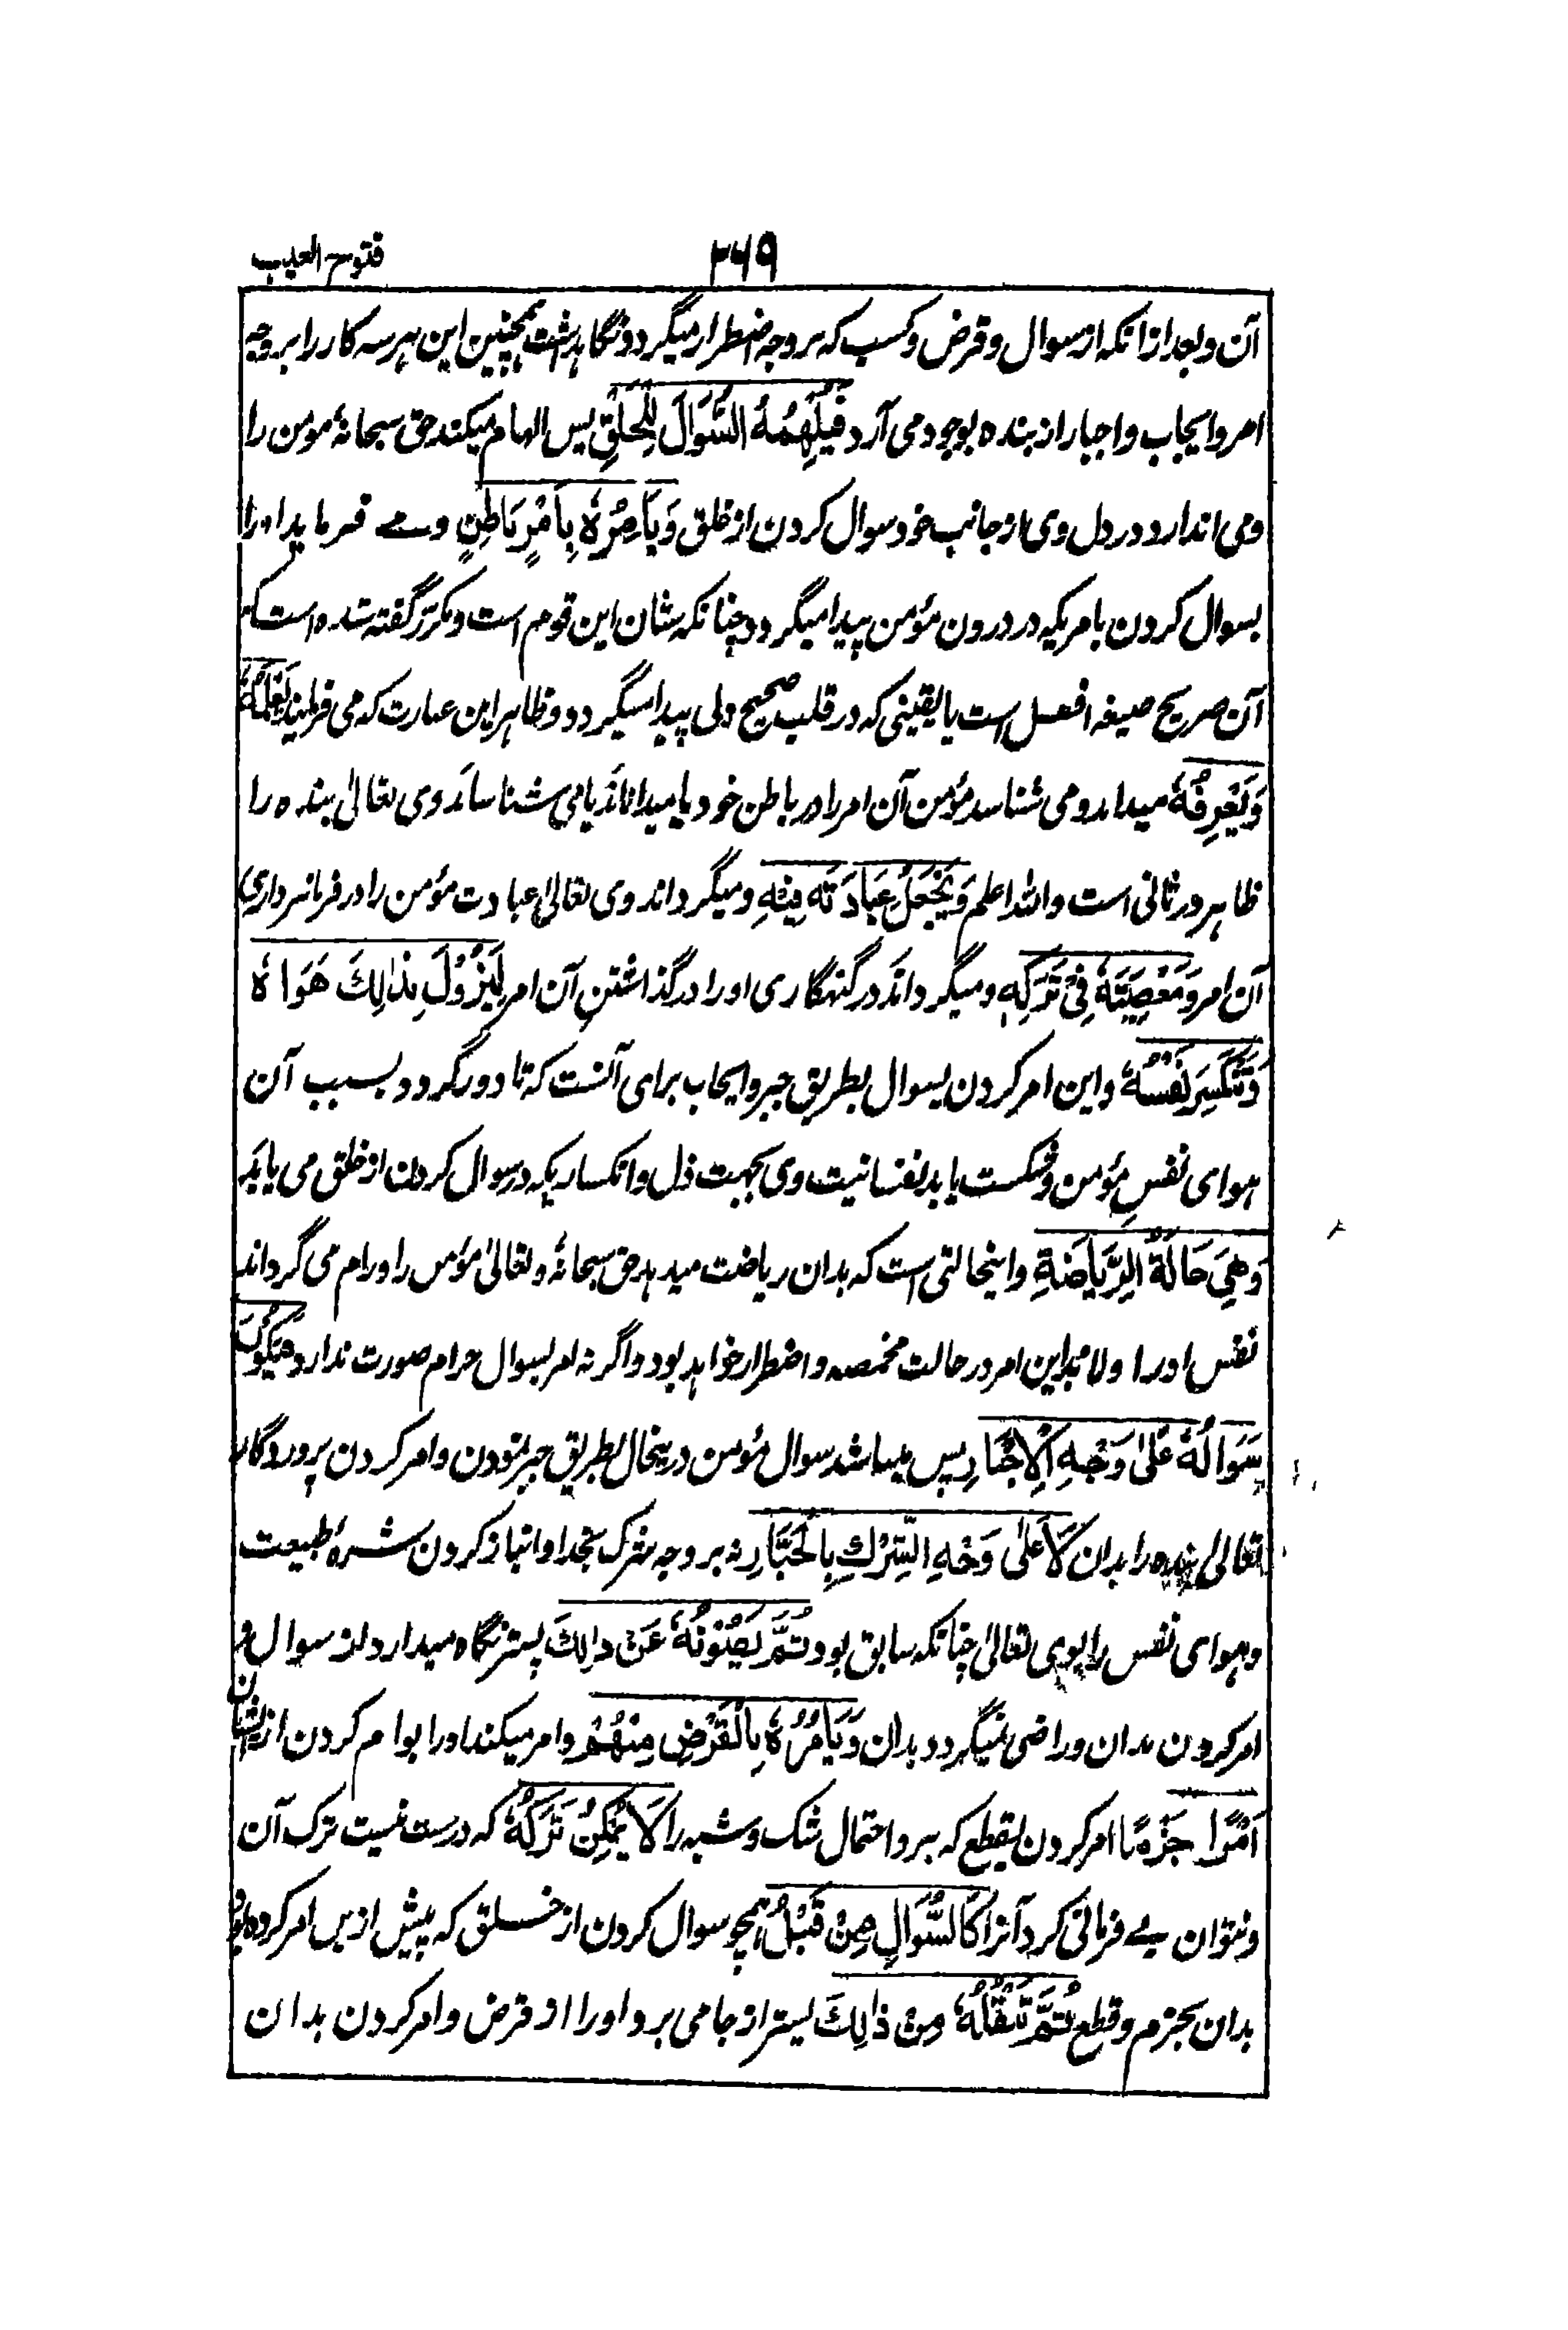 ۳۶۹ فتوح الغیب
آن و بعد از انکه از سوال و قرض و کسب که بر وجه اضطرار میگردد نگاهداشت همچنین این هر سه کار را بر وجه
امر و ایجاب و اجبار از بنده بوجود می آرد فَیُلْهِمُهُ السُّوَالَ لِلْخَلْقِ پس الهام میکند حق سبحانهٗ مومن را
و می اندازد در دل وی از جانب خود سوال کردن از خلق وَیَأْمُرُهٗ بِأَمْرٍ بَاطِنٍ و مے فرماید اورا
بسوال کردن بامریکه در درون مؤمن پیدا میگردد چنانکه شان این قوم است و مکرّر گفته شده است که
آن صریح صیغه افعل است یا یقینی که در قلب صحیح ولی پیدا میگردد و ظاهر این عبارت که می فرمایند یَعْلَمُهٗ
وَیَعْرِفُهٗ میداند و می شناسد مؤمن آن امر را در باطن خود یا میداناند یا می شناساند وی تعالیٰ بنده را
ظاهر در ثانی است والله اعلم وَیَجْعَلُ عِبَادَتَه فِیْهِ و میگرداند وی تعالیٰ عبادت مؤمن را در فرمانبرداری
آن امر وَمَعْصِیَتَهٗ فِیْ تَرْکِهٖ و میگرداند در گنهگاری اورا در گذاشتنِ آن امر لِیَزُوْلَ بِذٰلِکَ هَوَاهٗ
وَتَنْکَسِرَ نَفْسُهٗ و این امر کردن بسوال بطریق جبر و ایجاب برای آنست که تا دور گردد بسبب آن
هوای نفسِ مؤمن و شکست یابد نفسانیت وی بجهت ذل و انکساریکه در سوال کردن از خلق می یابد
وَهِیَ حَالَةُ الرِّیَاضَةِ و اینحالتی است که بدان ریاضت میدهد حق سبحانهٗ و تعالیٰ مؤمن را و رام می گرداند
نفس اورا و لابد این امر در حالت مخمصه و اضطرار خواهد بود و اگر نه امر بسوال حرام صورت ندارد فَیَکُوْنُ
سُوَالُهٗ عَلیٰ وَجْهِ الْاِجْبَارِ پس میباشد سوال مؤمن درینحال بطریق جبر نمودن و امر کردن پروردگار
تعالیٰ بنده را بدان لَا عَلیٰ وَجْهِ الشِّرْكِ بِالْجَبَّارِ نه بر وجه شرک بخدا و انباز کردن شرهٔ طبیعت
و هوای نفس را بوی تعالیٰ چنانکه سابق بود ثُمَّ یَصُوْنُهٗ عَنْ ذٰلِکَ پستر نگاه میدارد از سوال و
امر کردن بدان و راضی نمیگردد بدان وَیَأْمُرُهٗ بِالْقَرْضِ مِنْهُمْ و امر میکند اورا بوام کردن از ایشان
اَمْرًا جَزْمًا امر کردن بقطع که نبرد احتمال شک و شبه را لَا یُمْکِنُ تَرْکُهٗ که درست نیست ترک آن
و نتوان بے فرمانی کرد آنرا کَالسُّوَالِ مِنْ قَبْلُ همچو سوال کردن از خلق که پیش ازین امر کرده بود
بدان بجزم و قطع ثُمَّ تَنْقُلُهٗ مِنْ ذٰلِکَ پستر از جا می برد اورا از قرض و امر کردن بدان